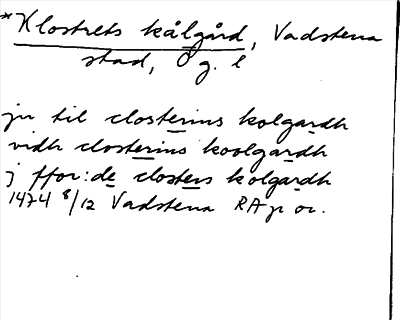 *Klostrets kålgård, Vadstena
stad, Ög. l
jn til closterins kolgardh
vidh closterins koolgardh
j ffor:de closters kolgardh
1474 8/12 Vadstena RAp or.